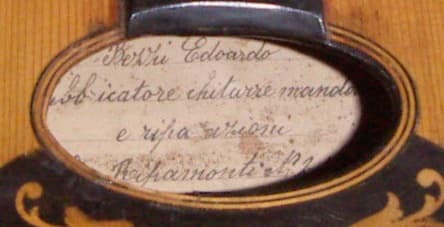 Bezzi Edoardo
bbricatore chitarre mando
e ripa azioni
Ripamonti N.